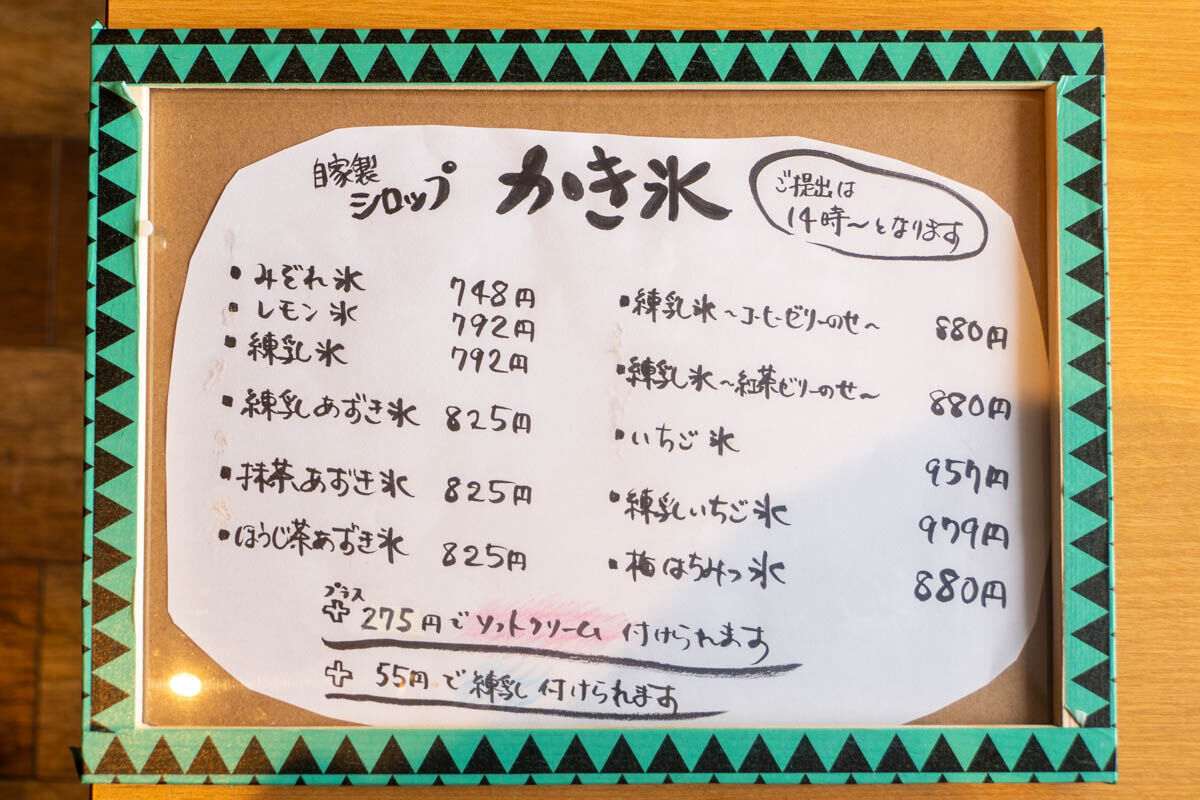 自家製
シロップ
かき氷
ご提出は
14時〜となります
▪みぞれ氷 748円
▪レモン氷 792円
▪練乳氷 792円
▪練乳あずき氷 825円
▪抹茶あずき氷 825円
▪ほうじ茶あずき氷 825円
▪練乳氷〜コーヒーゼリーのせ〜 880円
▪練乳氷〜紅茶ゼリーのせ〜 880円
▪いちご氷 957円
▪練乳いちご氷 979円
▪梅はちみつ氷 880円
プラス
+ 275円でソフトクリーム付けられます
+ 55円で練乳付けられます